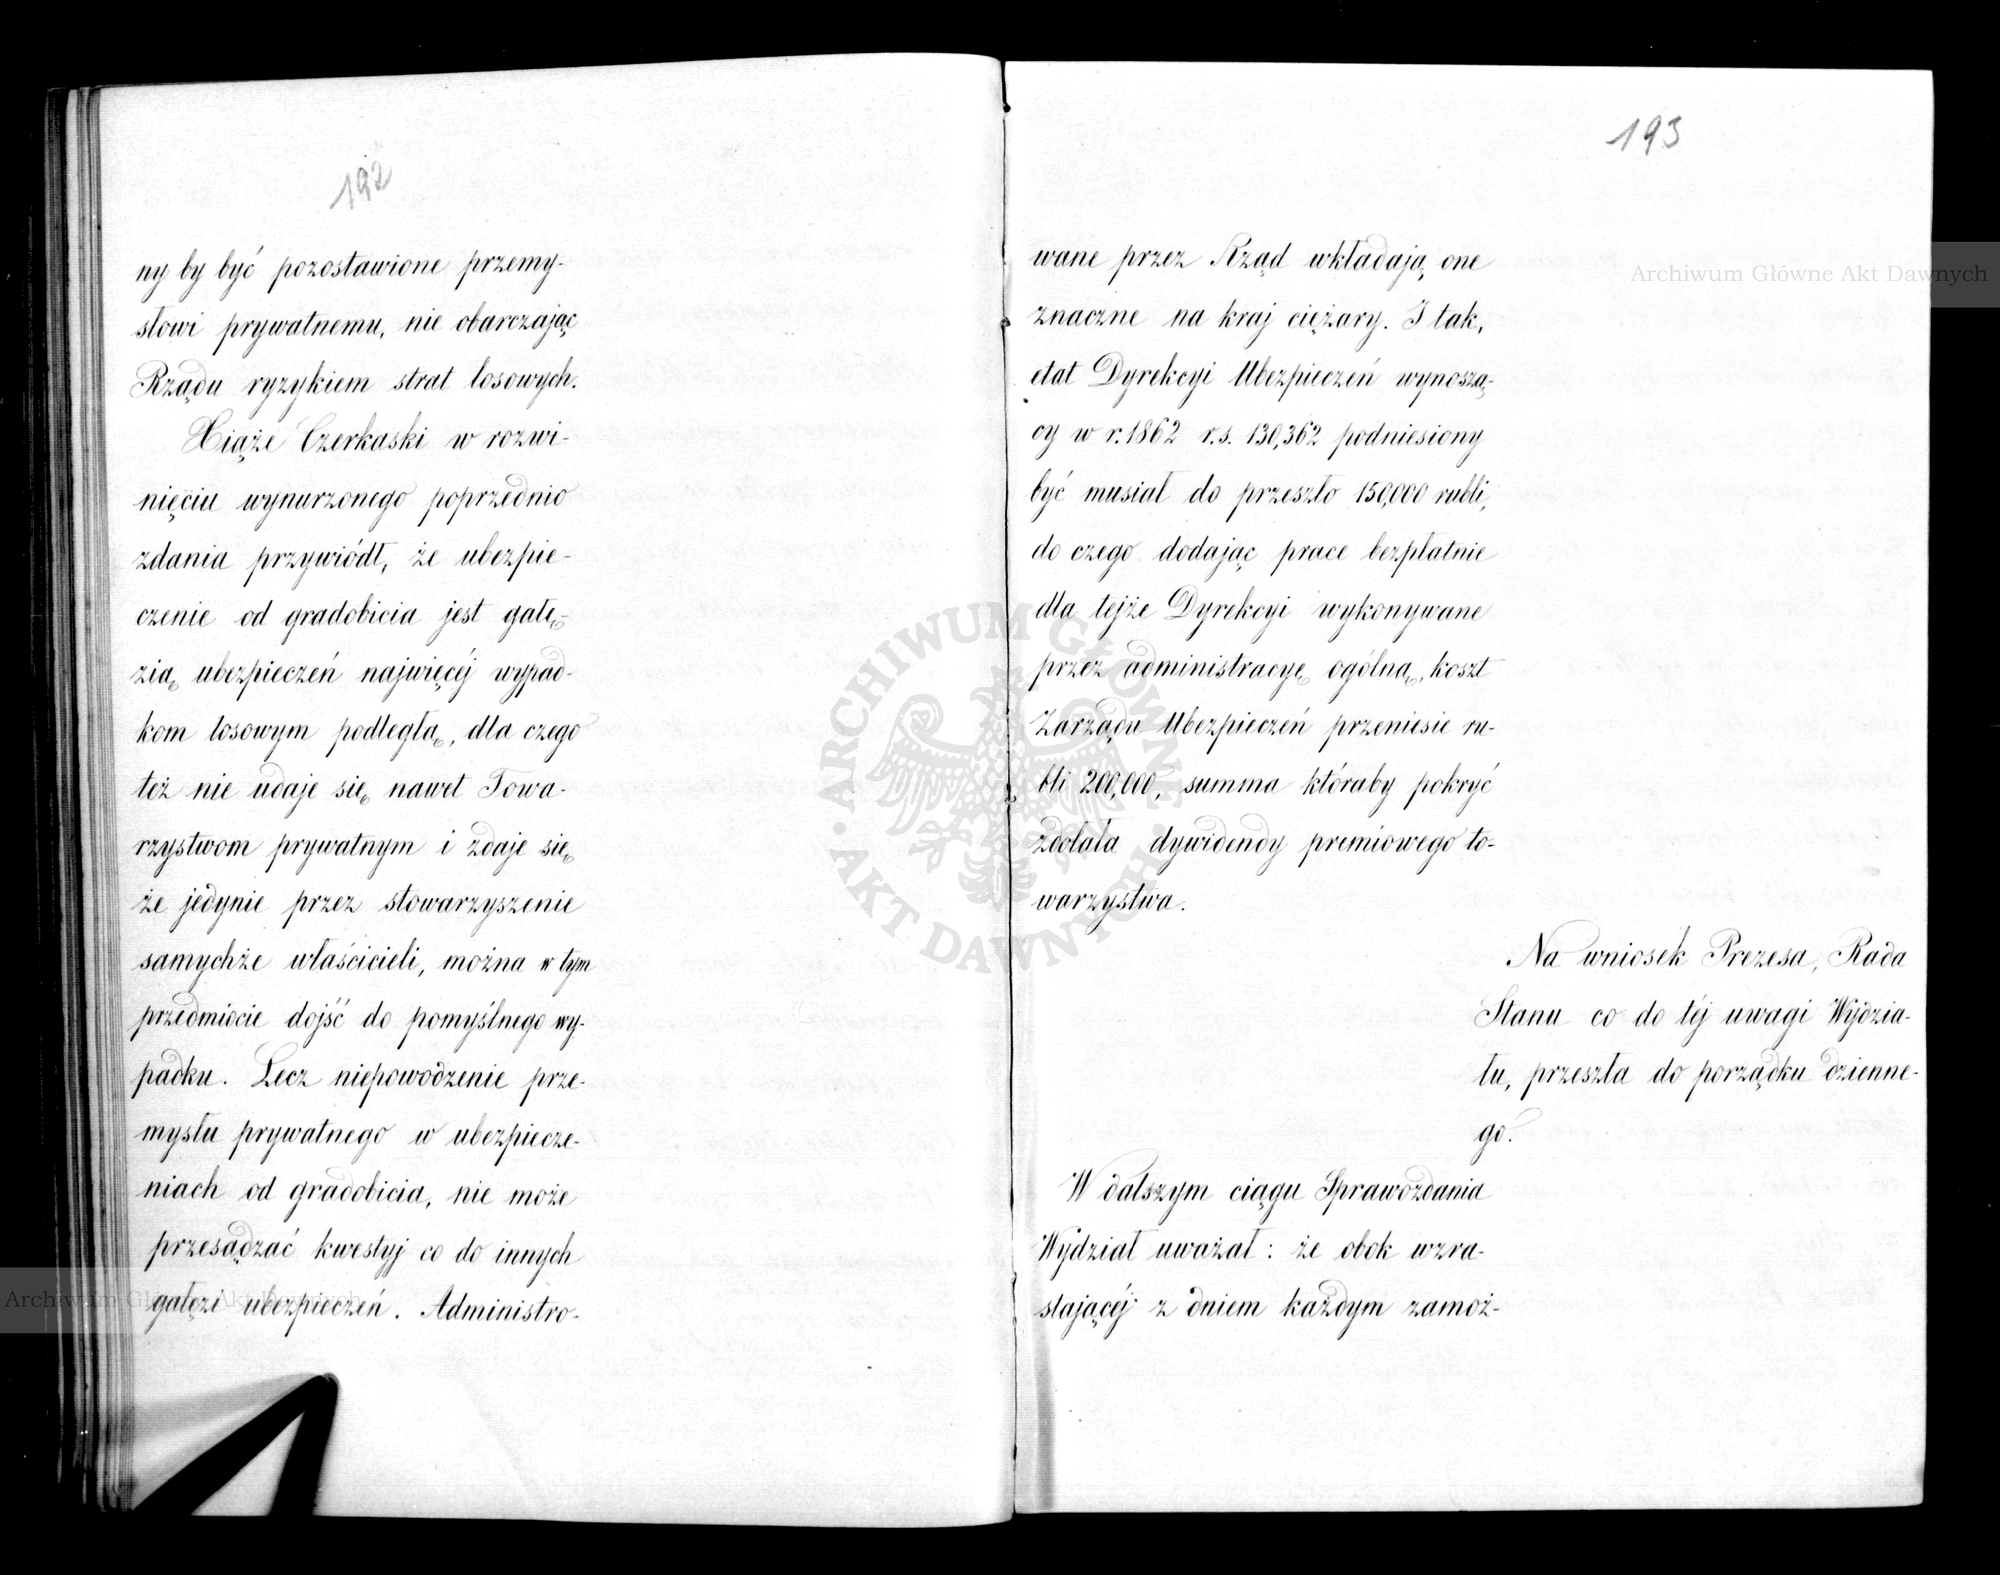 192
ny by być pozostawione przemy-
słowi prywatnemu, nie obarczając
Rządu ryzykiem strat losowych.
Xiąże Czerkaski w rozwi-
nięciu wynurzonego poprzednio
zdania przywiódł, że ubezpie-
czenie od gradobicia jest gałę-
zią ubezpieczeń najwięcéj wypad-
kom losowym podległą, dla czego
też nie udaje się nawet Towa-
rzystwom prywatnym i zdaje się
że jedynie przez stowarzyszenie
samychże właścicieli, można w tym
przedmiocie dojść do pomyślnego wy-
padku. Lecz niepowodzenie prze-
mysłu prywatnego w ubezpiecze-
niach od gradobicia, nie może
przesądzać kwestyj co do innych
gałęzi ubezpieczeń. Administro-
193
wane przez Rząd wkładają one
znaczne na kraj ciężary. I tak,
etat Dyrekcyi Ubezpieczeń wynoszą-
cy w r. 1862 r.s. 130,362 podniesiony
być musiał do przeszło 150,000 rubli,
do czego dodając prace bezpłatnie
dla tejże Dyrekcyi wykonywane
przez administracyę ogólną, koszt
Zarządu Ubezpieczeń przeniesie ru-
bli 200,000, summa któraby pokryć
zdołała dywidendy premiowego to-
warzystwa.
Na wniosek Prezesa, Rada
Stanu co do téj uwagi Wydzia-
łu, przeszła do porządku dzienne-
go.
W dalszym ciągu Sprawozdania
Wydział uważał: że obok wzra-
stającéj z dniem każdym zamoż-
Archiwum Główne Akt Dawnych
Archiwum Główne Akt Dawnych
ARCHIWUM GŁÓWNE
AKT DAWNYCH